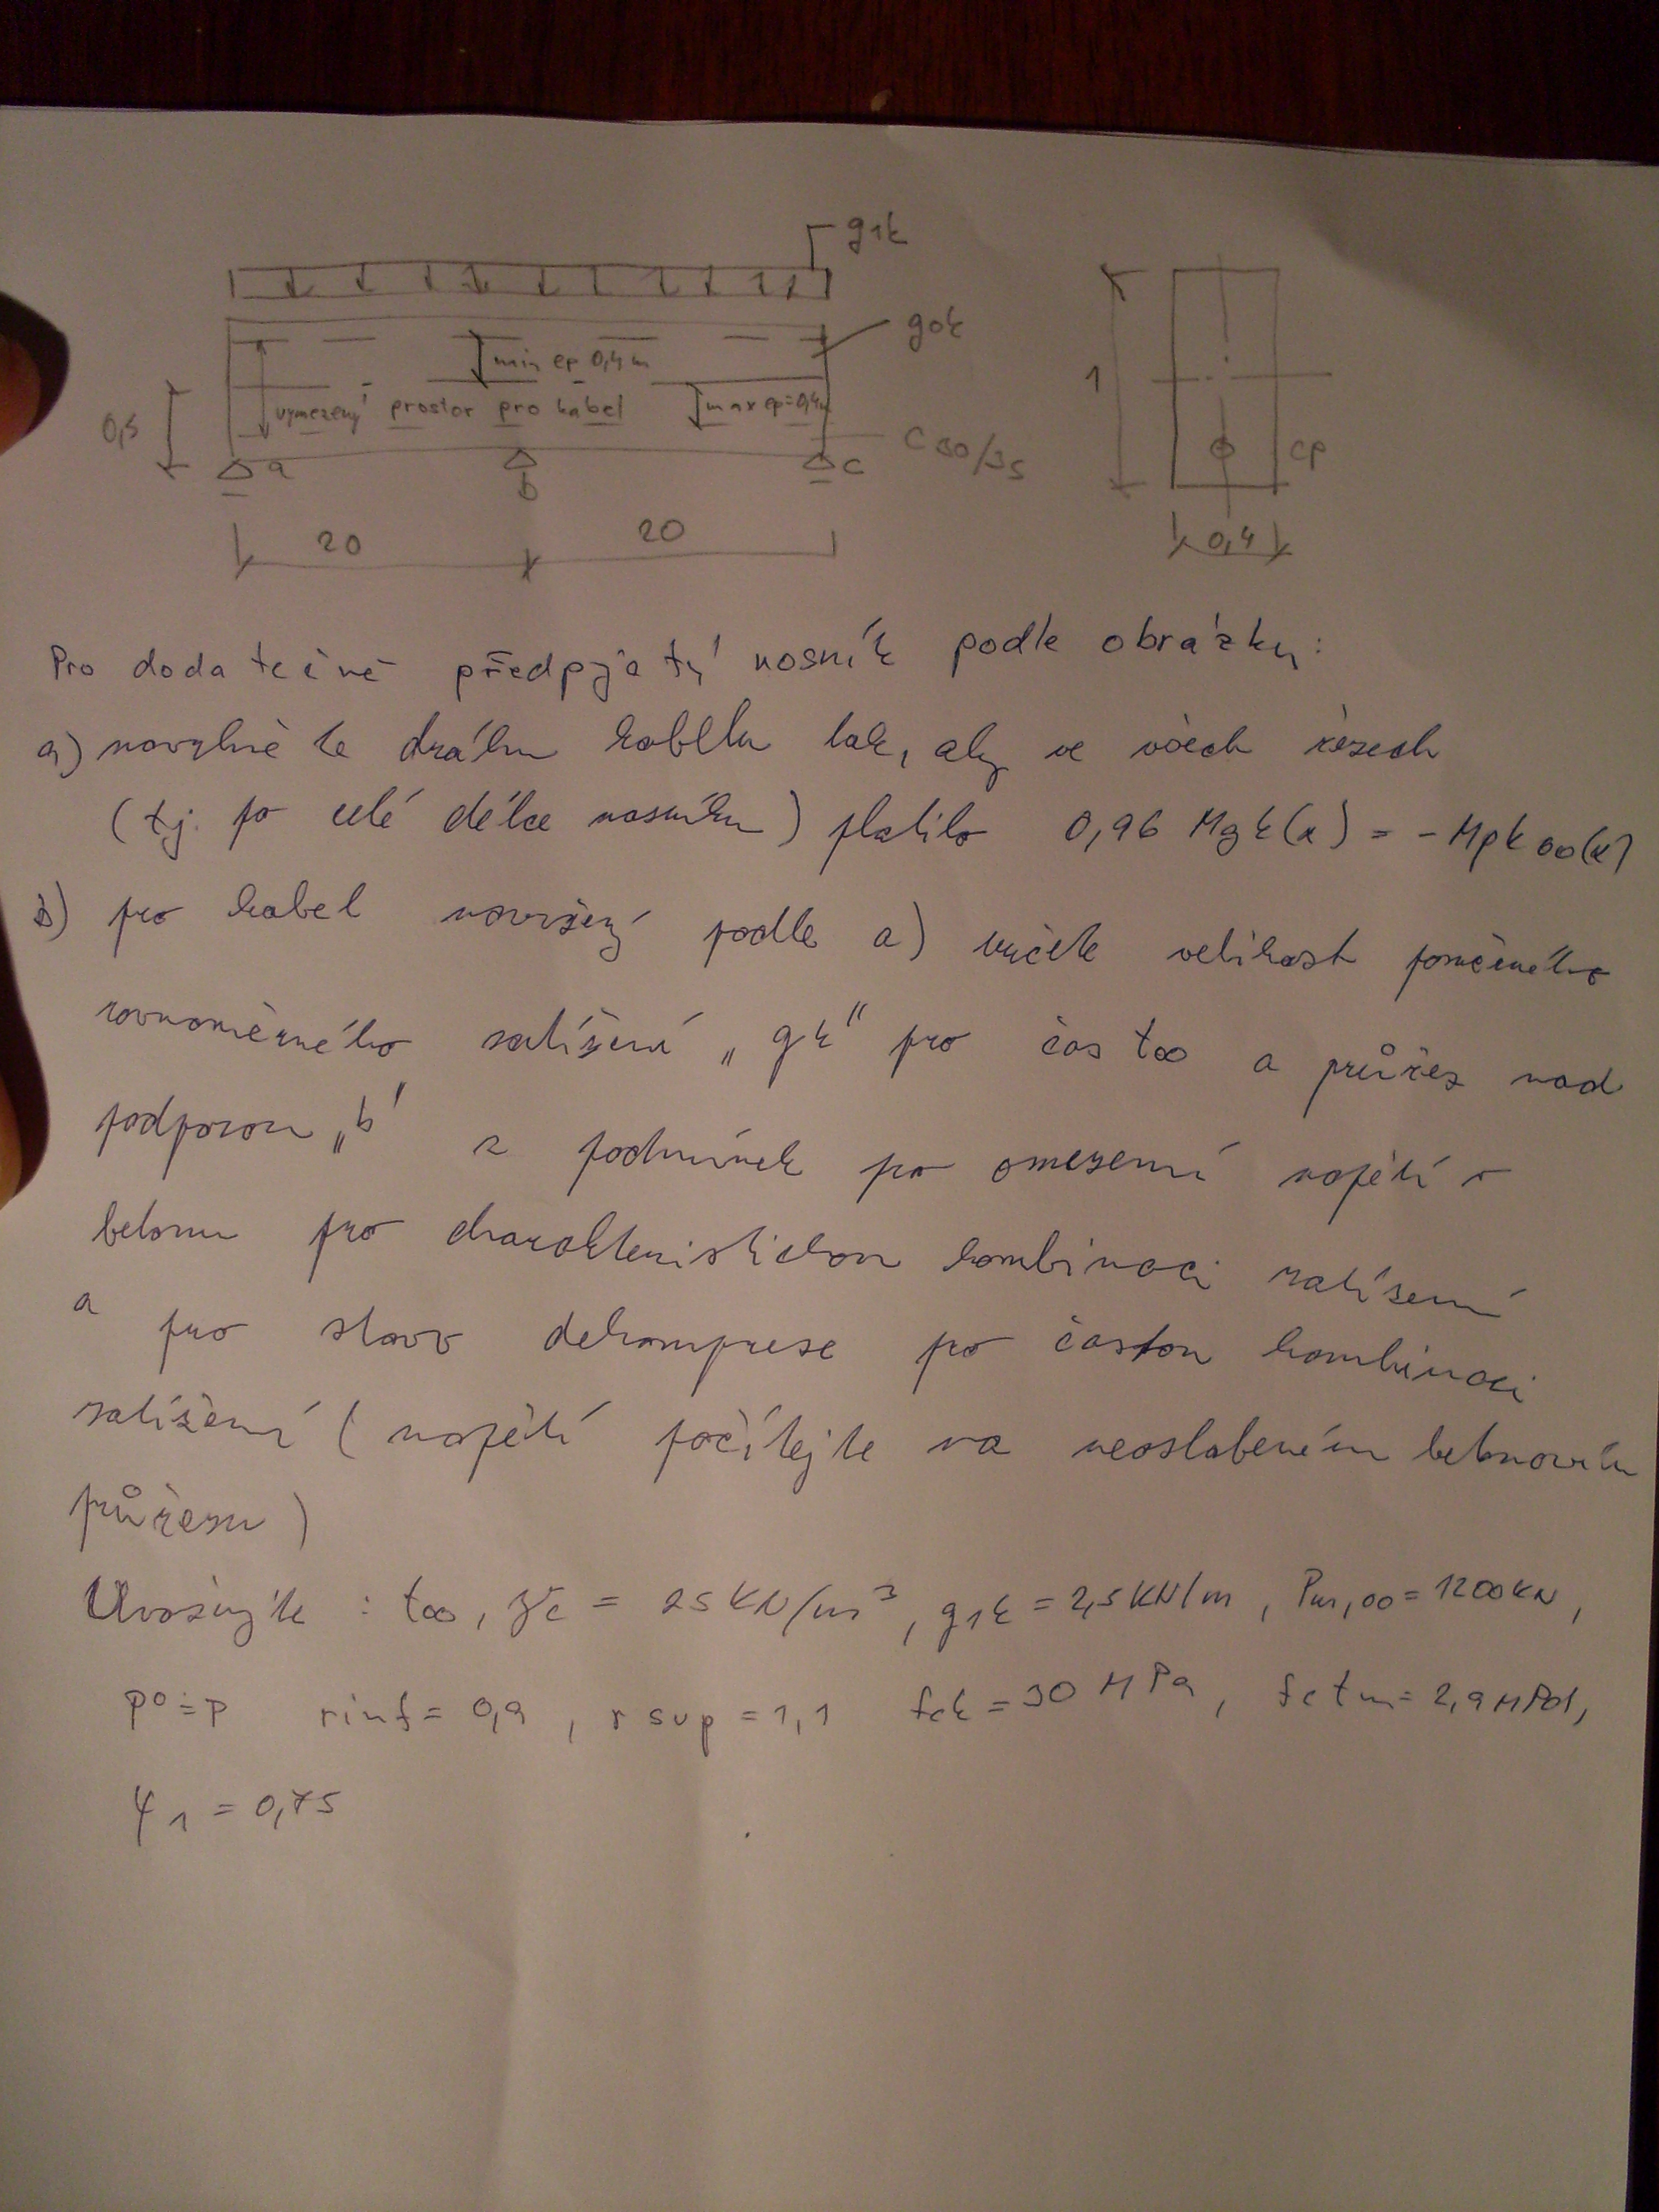 g1k
g0k
min ep 0,4m
vymezený prostor pro kabel
max ep=0,4m
0,5
C 30/35
a
b
c
20
20
1
cp
0,4
Pro dodatečně předpjatý nosník podle obrázku:
a) navrhněte dráhu kabelu tak, aby ve všech řezech
(tj. po celé délce nosníku) platilo 0,96 Mgk(x) = - Mpk∞(x)
b) pro kabel navržený podle a) určete velikost proměnného
rovnoměrného zatížení „qk" pro čas t∞ a průřez nad
podporou „b" z podmínek po omezení napětí v
betonu pro charakteristickou kombinaci zatížení
a pro stav dekomprese po častou kombinaci
zatížení (napětí počítejte na neoslabeném betonovém
průřezu)
Uvažujte : t∞, γc = 25 KN/m³, g1k = 2,5 KN/m, Pm,∞ = 1200 kN,
p0=p rinf = 0,9, rsup = 1,1 fck = 30 MPa, fctm = 2,9 MPa,
ψ1 = 0,75